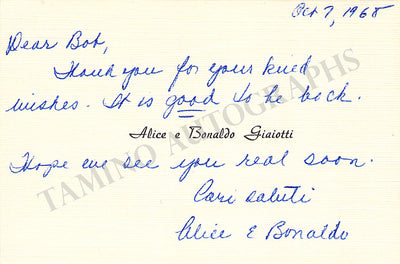 Oct 7, 1968
Dear Bob,
Thank you for your kind
wishes. It is good to be back.
Alice e Bonaldo Giaiotti
Hope we see you real soon.
Cari saluti
Alice E Bonaldo
TAMINO AUTOGRAPHS